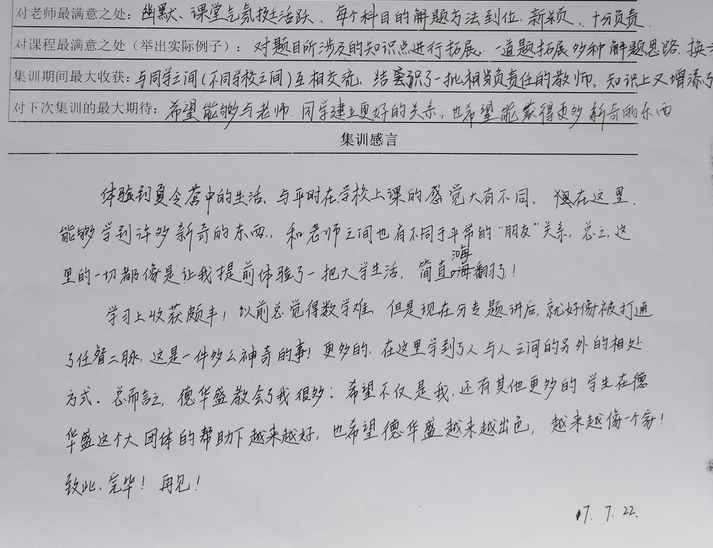 对老师最满意之处: 幽默、课堂气氛挺活跃、每个科目的解题方法到位、新颖、十分负责
对课程最满意之处（举出实际例子）: 对题目所涉及的知识点进行拓展，一道题拓展多种解题思路，换
集训期间最大收获: 与同学之间(不同学校之间)互相交流，结识了一批相当负责任的教师，知识上又增添了
对下次集训的最大期待: 希望能够与老师、同学建立更好的关系，也希望能获得更多新奇的东西
集训感言
体验到夏令营中的生活，与平时在学校上课的感觉大有不同、在这里，
能够学到许多新奇的东西，和老师之间也有不同于平常的“朋友”关系，总之，这
里的一切都像是让我提前体验了一把大学生活，简直嗨翻了！
学习上收获颇丰！以前总觉得数学难，但是现在分专题讲后，就好像被打通
了任督二脉，这是一件多么神奇的事！更多的，在这里学到了人与人之间的另外的相处
方式。总而言之，德华盛教会了我很多；希望不仅是我，还有其他更多的学生在德
华盛这个大团体的帮助下越来越好，也希望德华盛越来越出色，越来越像一个家！
致此、完毕！再见！
17.7.22.